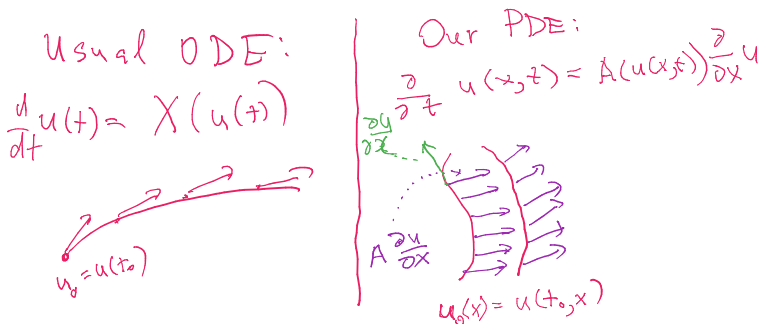 Usual ODE:
d/dt u(t) = X(u(t))
u₀ = u(t₀)
Our PDE:
∂/∂t u(x,t) = A(u(x,t)) ∂/∂x u
∂u/∂x
A ∂u/∂x
u₀(x) = u(t₀,x)